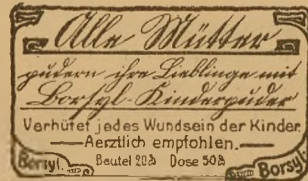 Alle Mütter
pudern ihre Lieblinge mit
Borsyl-Kinderpuder
Verhütet jedes Wundsein der Kinder
Aerztlich empfohlen.
Borsyl. Beutel 20₰ Dose 50₰ Borsyl.